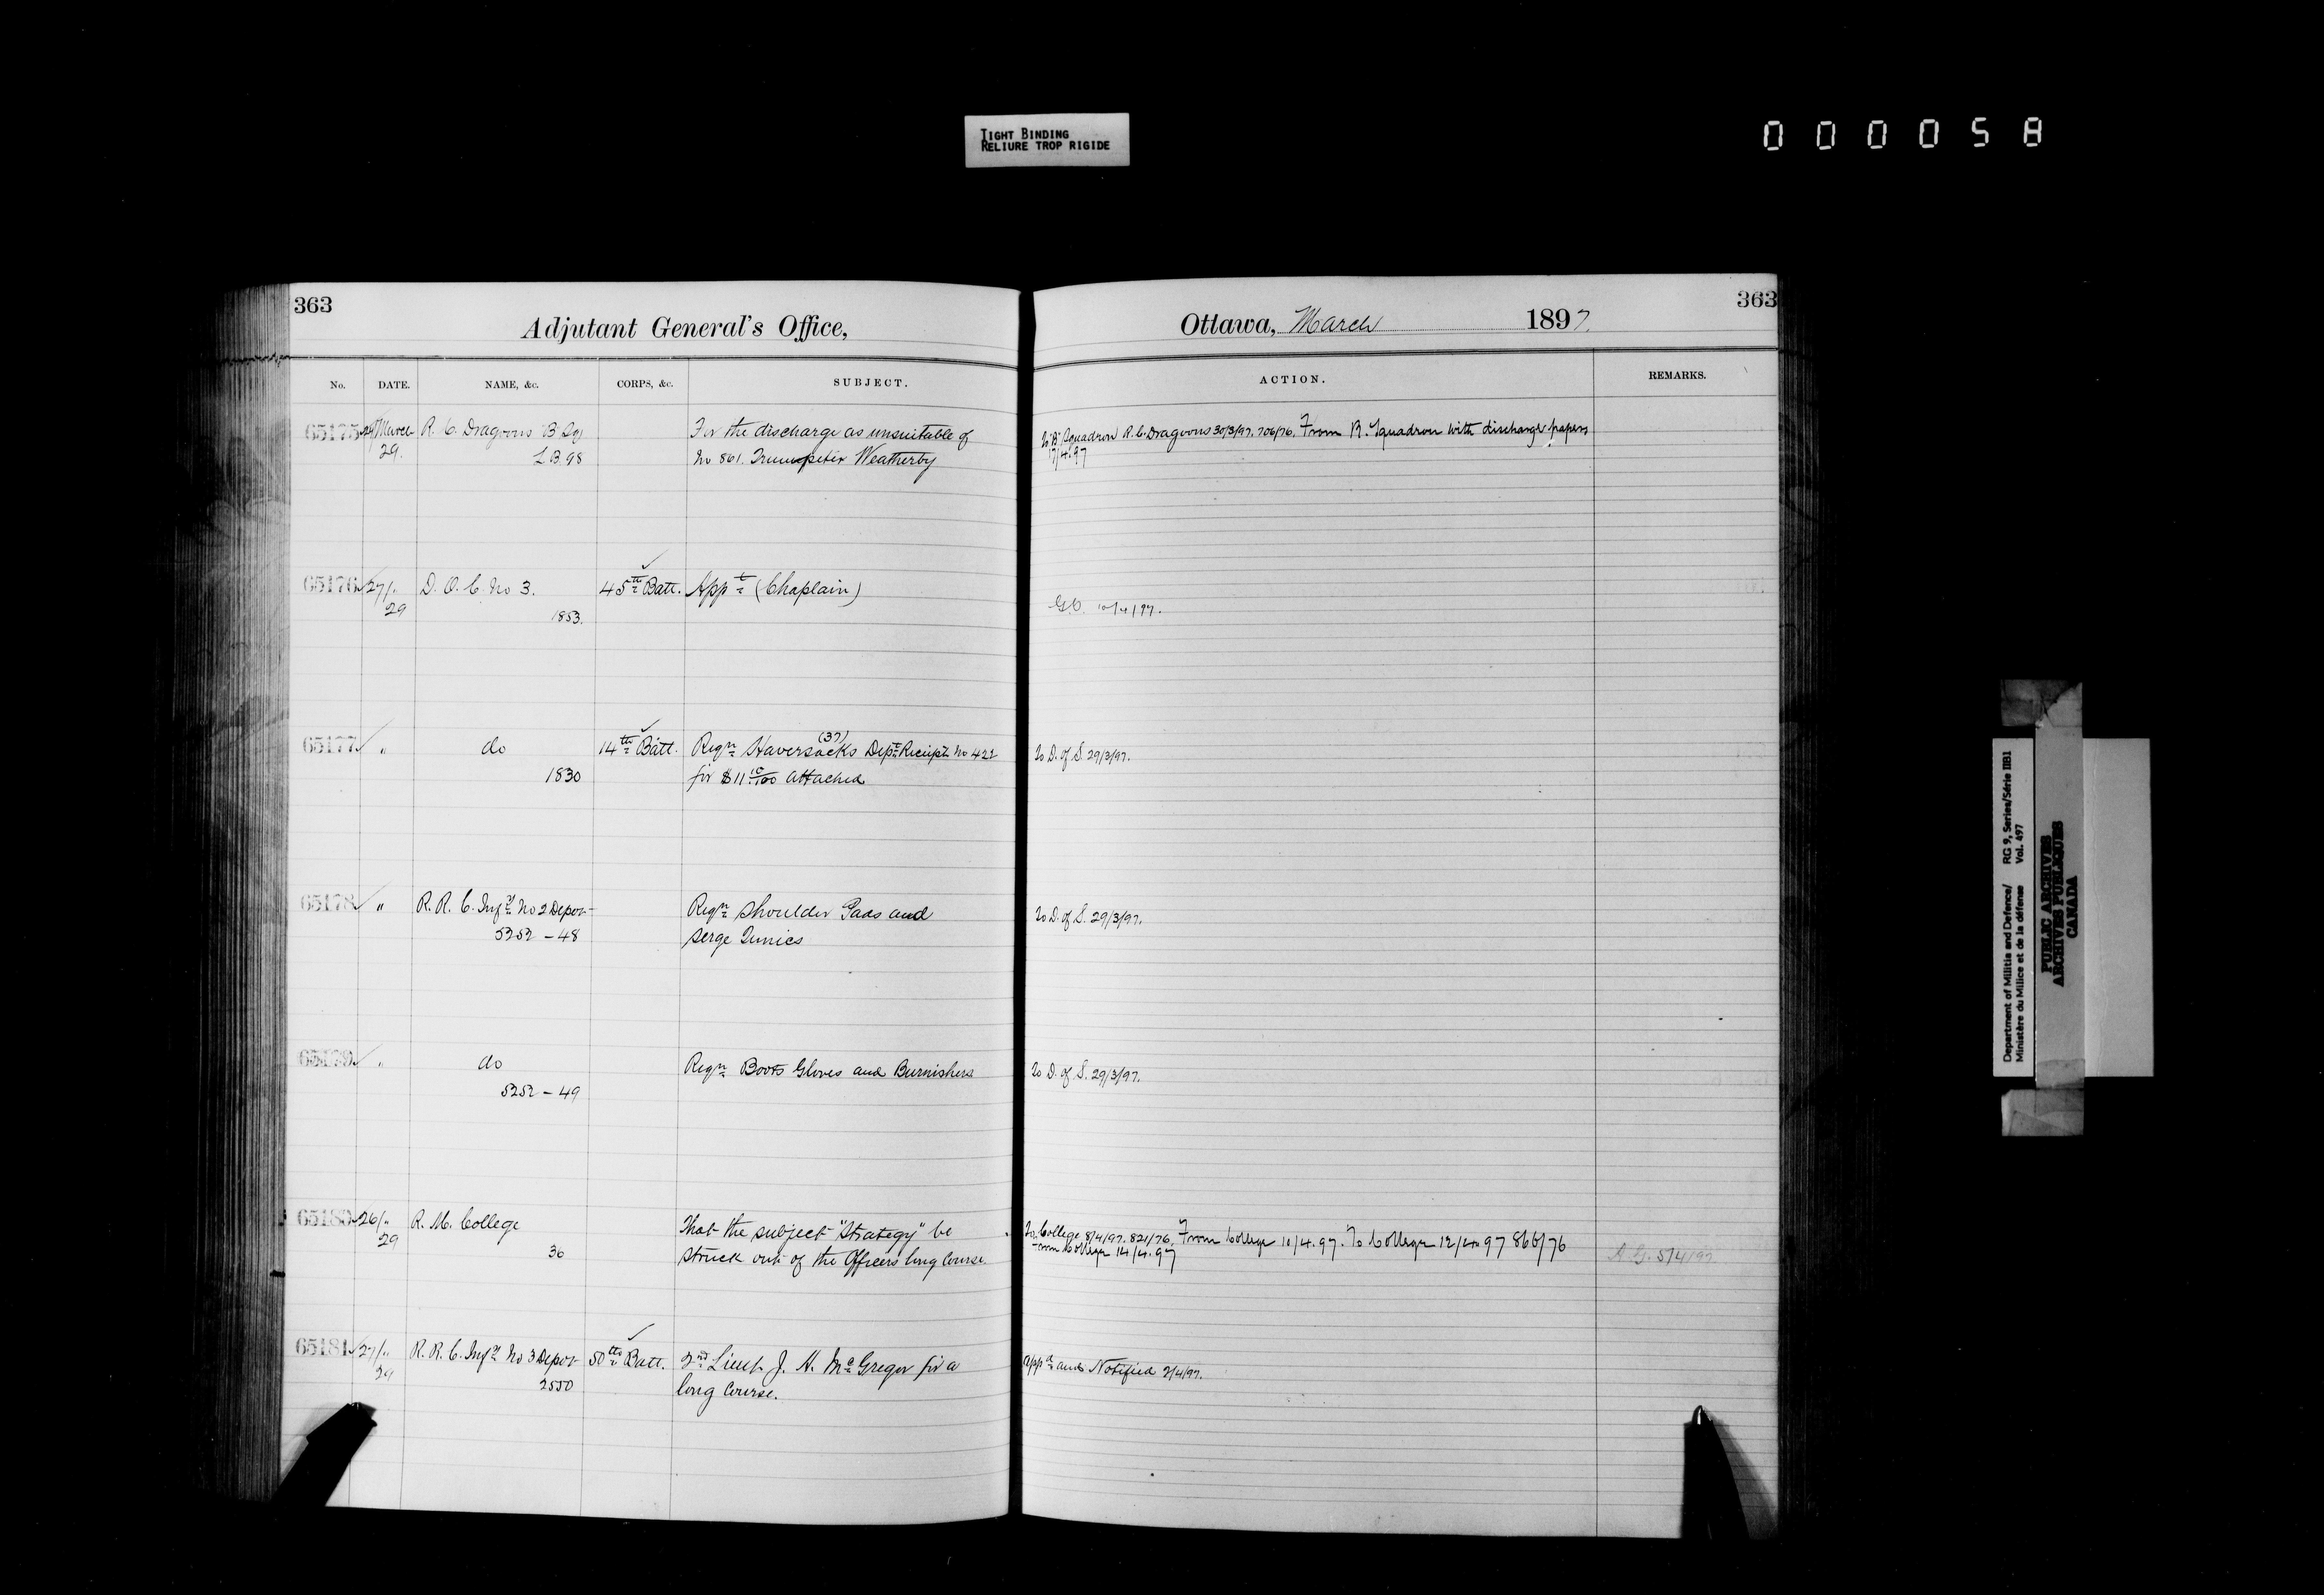 TIGHT BINDING
RELIURE TROP RIGIDE
000058
363
Adjutant General's Office,
No. DATE. NAME, &c. CORPS, &c. SUBJECT.
65175 March R. C. Dragoons "B" Sq For the discharge as unsuitable of
29. L B 98 No 861. Trumpeter Weatherby
65176 27/" D. O. C. No 3. 45th Batt. Appt (Chaplain)
29 1853.
65177 " do 14th Batt. Reqn Haversacks (37) Dept Receipt No 422
1830 for $11 10/100 attached
65178 " R. R. C. Infy No 2 Depot Reqn Shoulder Pads and
5252 - 48 Serge Tunics
65179 " do Reqn Boots Gloves and Burnishers
5252 - 49
65180 26/" R. M. College That the subject "Strategy" be
29 36 struck out of the Officers long Course
65181 27/" R. R. C. Infy No 3 Depot 50th Batt. 2nd Lieut J. H. McGregor for a
29 2550 long Course.
363
Ottawa, March 1897.
ACTION. REMARKS.
To "B" Squadron R. C. Dragoons 30/3/97. 706/76. From B. Squadron with discharge papers
17/4.97
G.O. 10/4/97.
To D. of S. 29/3/97.
To D. of S. 29/3/97.
To D. of S. 29/3/97.
To College 8/4/97. 821/76. From College 10/4.97. To College 12/4.97 866/76
From College 14/4.97
A.G. 5/4/97.
Appd and Notified 2/4/97.
Department of Militia and Defence/ RG 9, Series/Série IIB1
Ministère du Milice et de la défense Vol. 497
PUBLIC ARCHIVES
ARCHIVES PUBLIQUES
CANADA